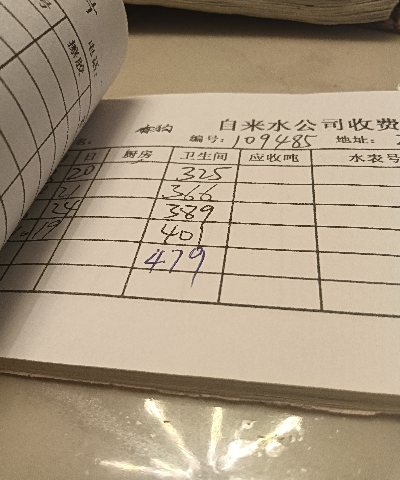 自来水公司收费
编号: 109485 地址:
日 厨房 卫生间 应收吨 水表号
20 325
21 366
24 389
19 401
479